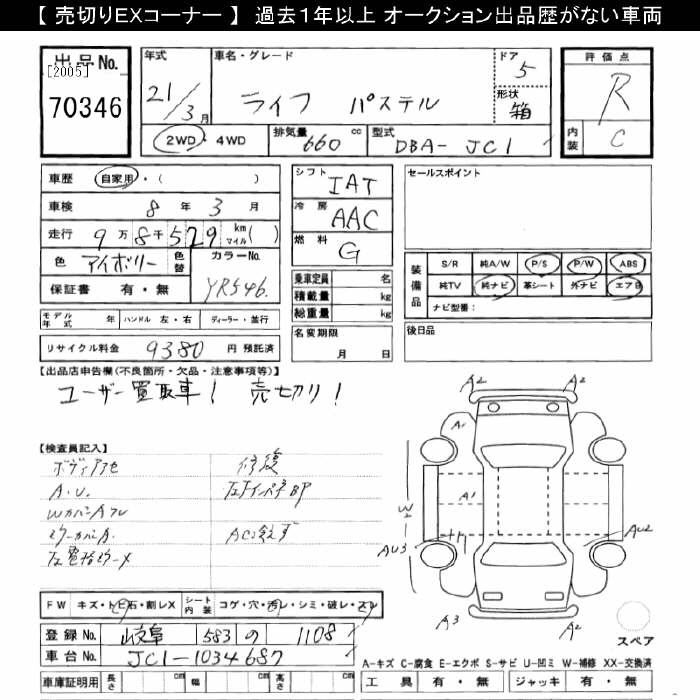 【 売切りEXコーナー 】 過去１年以上 オークション出品歴がない車両
出品No.
[2005]
70346
年式 21/3月
車名・グレード ライフ パステル
ドア 5
形状 箱
2WD・4WD
排気量 660 cc
型式 DBA- JC1
評価点 R
内装 C
車歴 自家用・( )
車検 8年 3月
走行 9万8千529 km マイル( )
色 アイボリー 色替 カラーNo. YR546.
保証書 有・無
シフト IAT
冷房 AAC
燃料 G
乗車定員 名
積載量 kg
総重量 kg
セールスポイント
装備品
S/R 純A/W P/S P/W ABS
純TV 純ナビ 革シート 外ナビ エアB
ナビ型番：
モデル年式 年 ハンドル 左・右 ディーラー・並行
リサイクル料金 9380 円 預託済
名変期限 月 日
後日品
【出品店申告欄(不良箇所・欠品・注意事項等)】
ユーザー買取車！ 売切り！
【検査員記入】
ボディアセ 修復
A.U.
WカバーAフレ
ミラーカバーA. ACロ冷えず
A2 A2
A1
A1
W1
AU3 AU2
A3 A2
スペア
FW キズ・トビ石・割レX シート内装 コゲ・穴・汚レ・シミ・破レ・スレ
登録No. 岐阜 583 の 1108
車台No. JC1-1034687
車庫証明用 長さ cm 幅 cm 高さ cm
A-キズ C-腐食 E-エクボ S-サビ U-凹ミ W-補修 XX-交換済
工具 有・無 ジャッキ 有・無